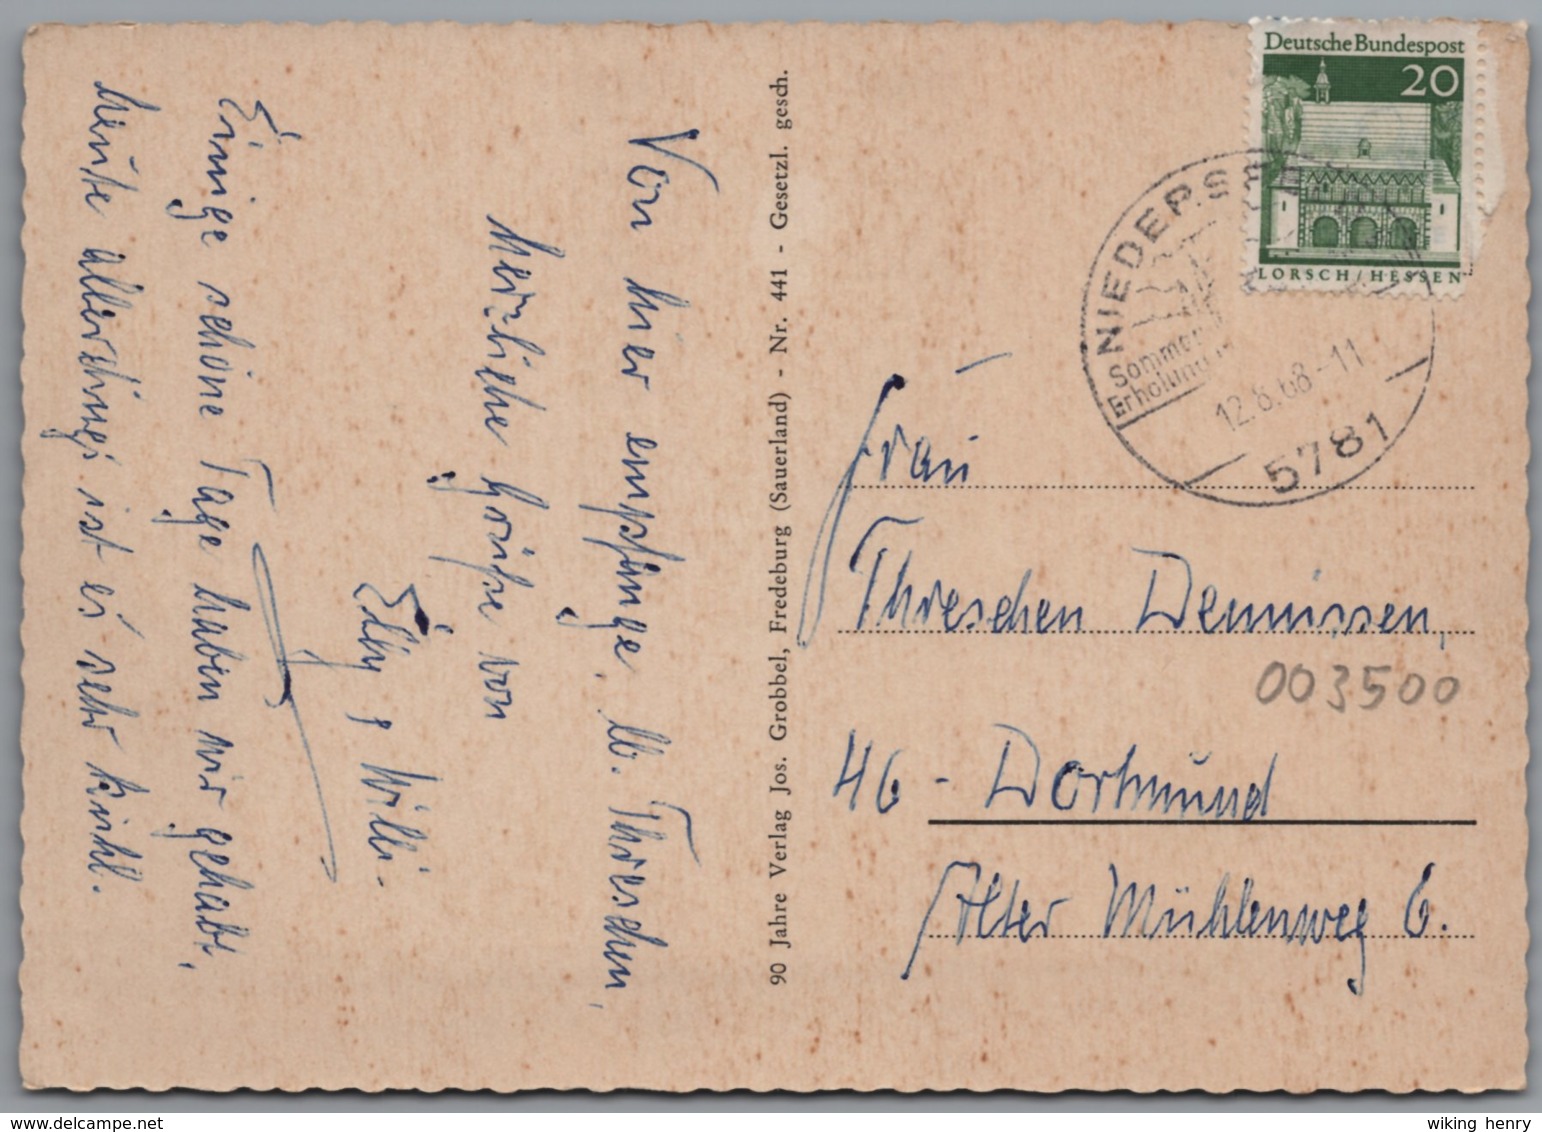 Von hier empfange, lb. Threschen,
herzliche Grüße von
Elly & Willi.
Einige schöne Tage haben wir gehabt,
heute allerdings ist es sehr kühl.
90 Jahre Verlag Jos. Grobbel, Fredeburg (Sauerland) - Nr. 441 - Gesetzl. gesch.
Deutsche Bundespost
20
LORSCH/HESSEN
Sommer
12.8.68-11
5781
Frau
Threschen Dennissen,
003500
46 - Dortmund
Alter Mühlenweg 6.
wiking henry